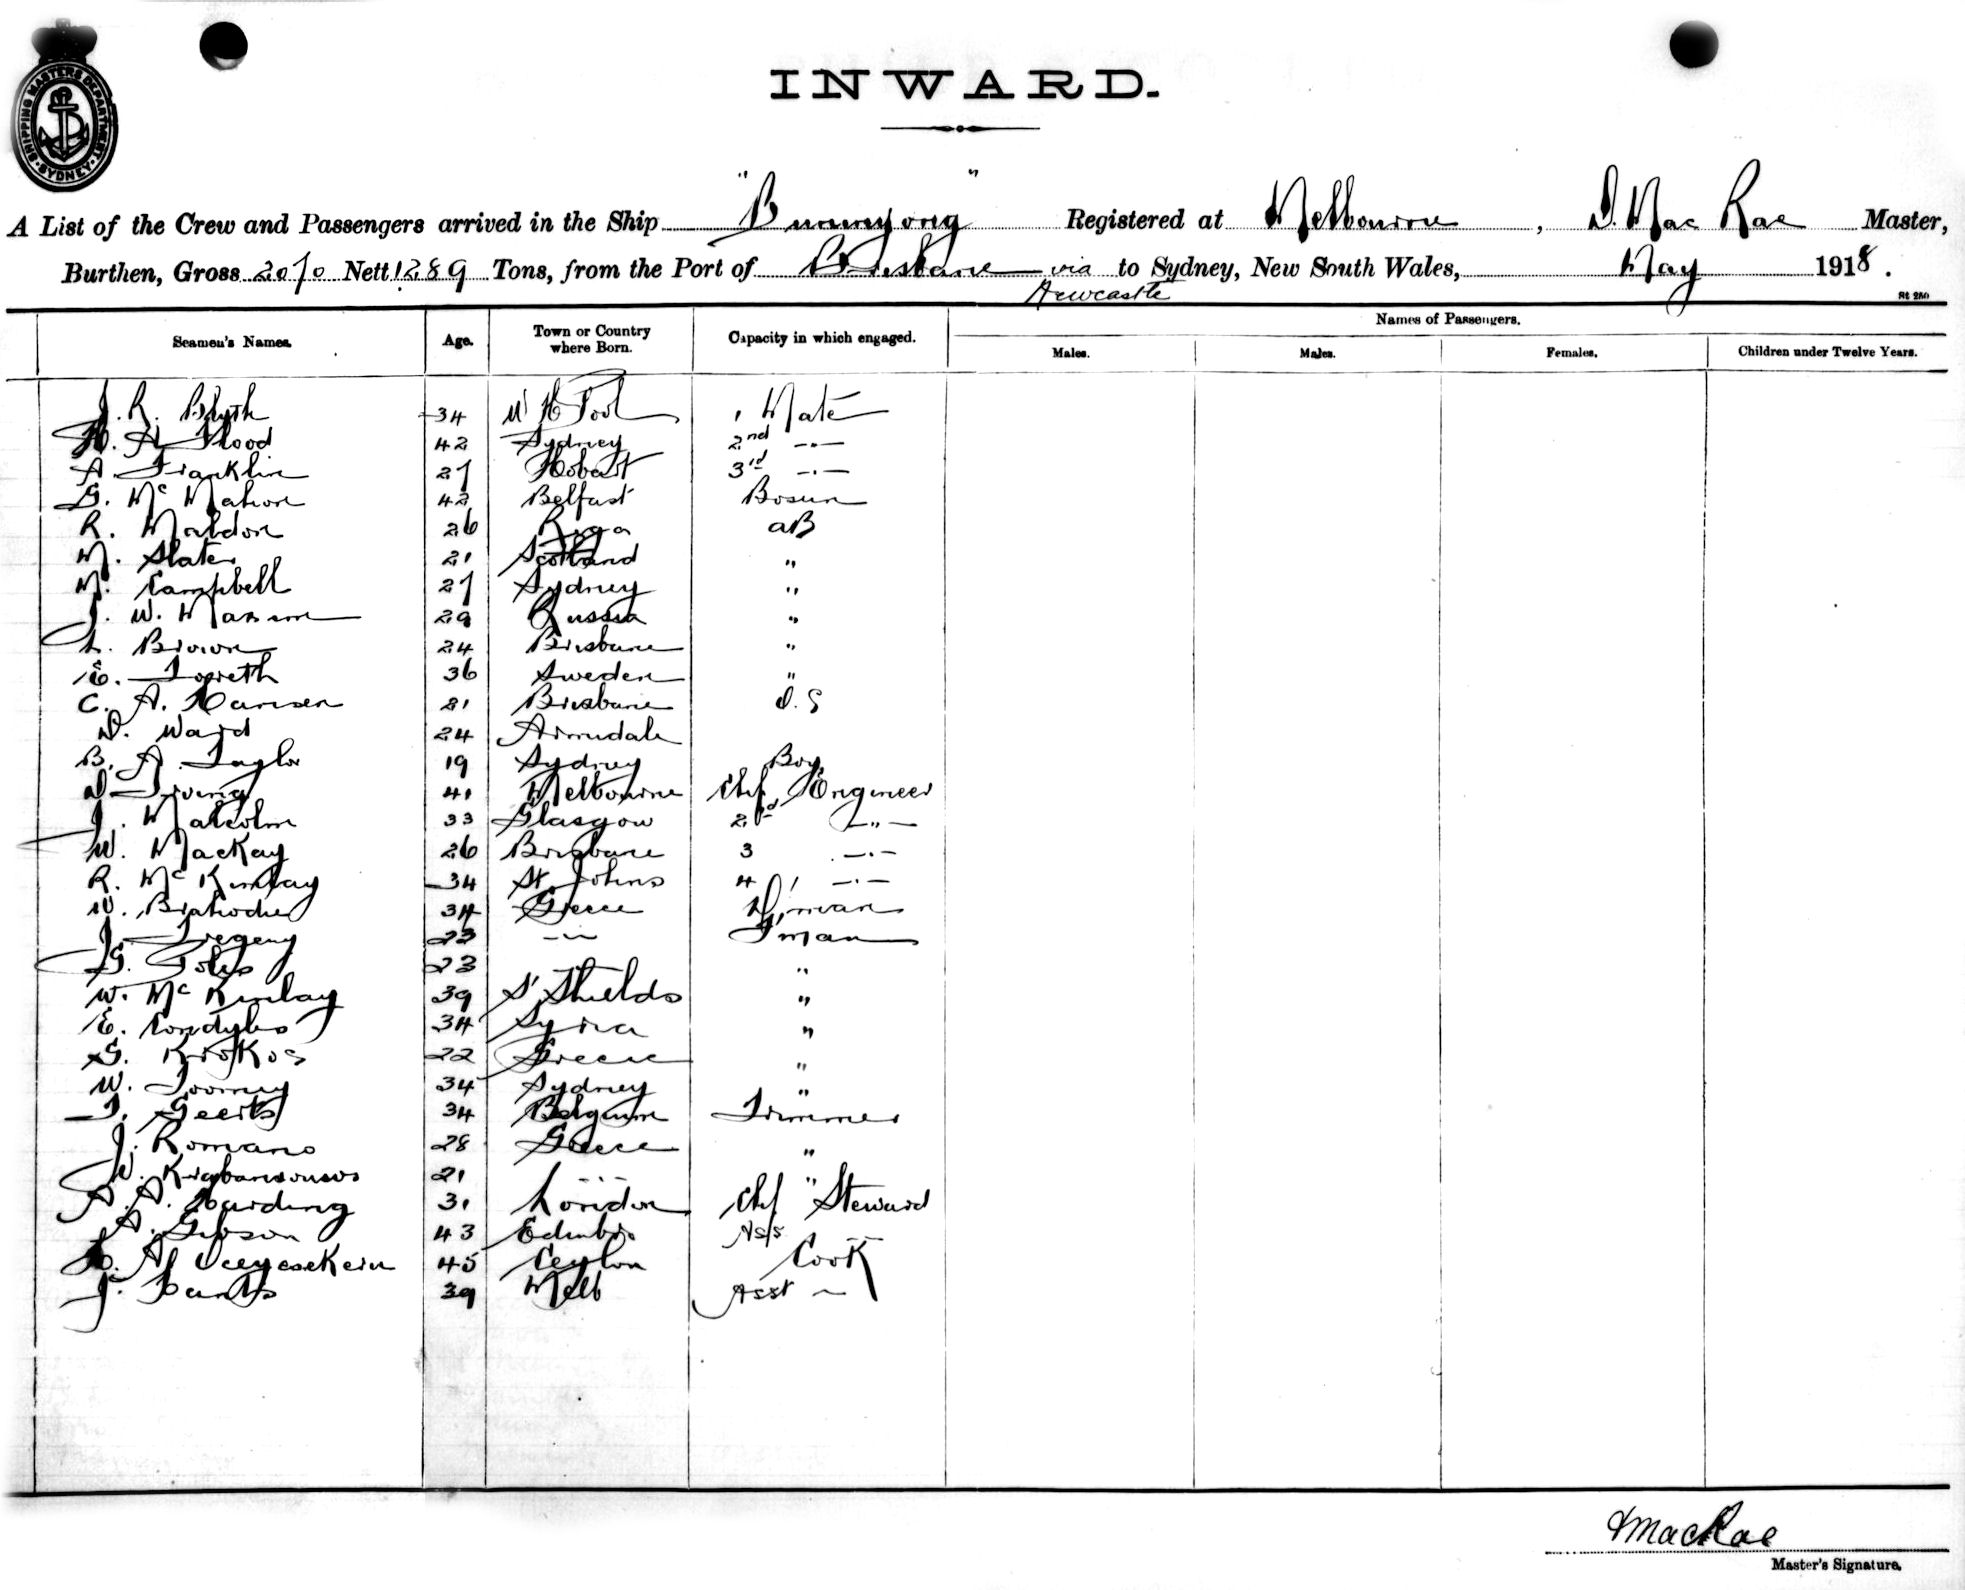 SHIPPING MASTERS DEPARTMENT
SYDNEY
INWARD.
A List of the Crew and Passengers arrived in the Ship "Buninyong" Registered at Melbourne, D. Mac Rae Master,
Burthen, Gross 2070 Nett 1289 Tons, from the Port of Brisbane via to Sydney, New South Wales, May 1918.
Newcastle
Seamen's Names. Age. Town or Country where Born. Capacity in which engaged. Names of Passengers.
Males. Males. Females. Children under Twelve Years.
J. R. Blyth 34 1 Mate
H. A. Flood 42 Sydney 2nd -"-
A Franklin 27 Hobart 3rd -"-
G. Mc Mahon 42 Belfast Bosun
R. Maldon 26 Riga AB
M. Slater 21 Scotland "
M. Campbell 27 Sydney "
J. W. 29 Russia "
L. Brown 24 Brisbane "
E. 36 Sweden "
C. A. Hansen 21 Brisbane O.S
D. Ward 24 Armidale
B. A. Taylor 19 Sydney Boy
D Irving 41 Melbourne Chf Engineer
J. Malcolm 33 Glasgow 2nd -"-
W. MacKay 26 Brisbane 3 -"-
R. Mc Kinlay 34 St Johns 4 -"-
34 Greece
J. 23 -"- F'man
G. 23 "
W. Mc Kinlay 39 S' Shields "
E. Condyles 34 Syria "
G. Krokos 22 Greece "
W. Toomey 34 Sydney "
T. Geerts 34 Belgium Trimmer
J. Romano 28 Greece "
21 -"- "
A. A. Harding 31 London Chf Steward
A. Gibson 43 Edinbro Ass -"-
45 Ceylon Cook
J. 39 Melb Asst ~
MacRae
Master's Signature.